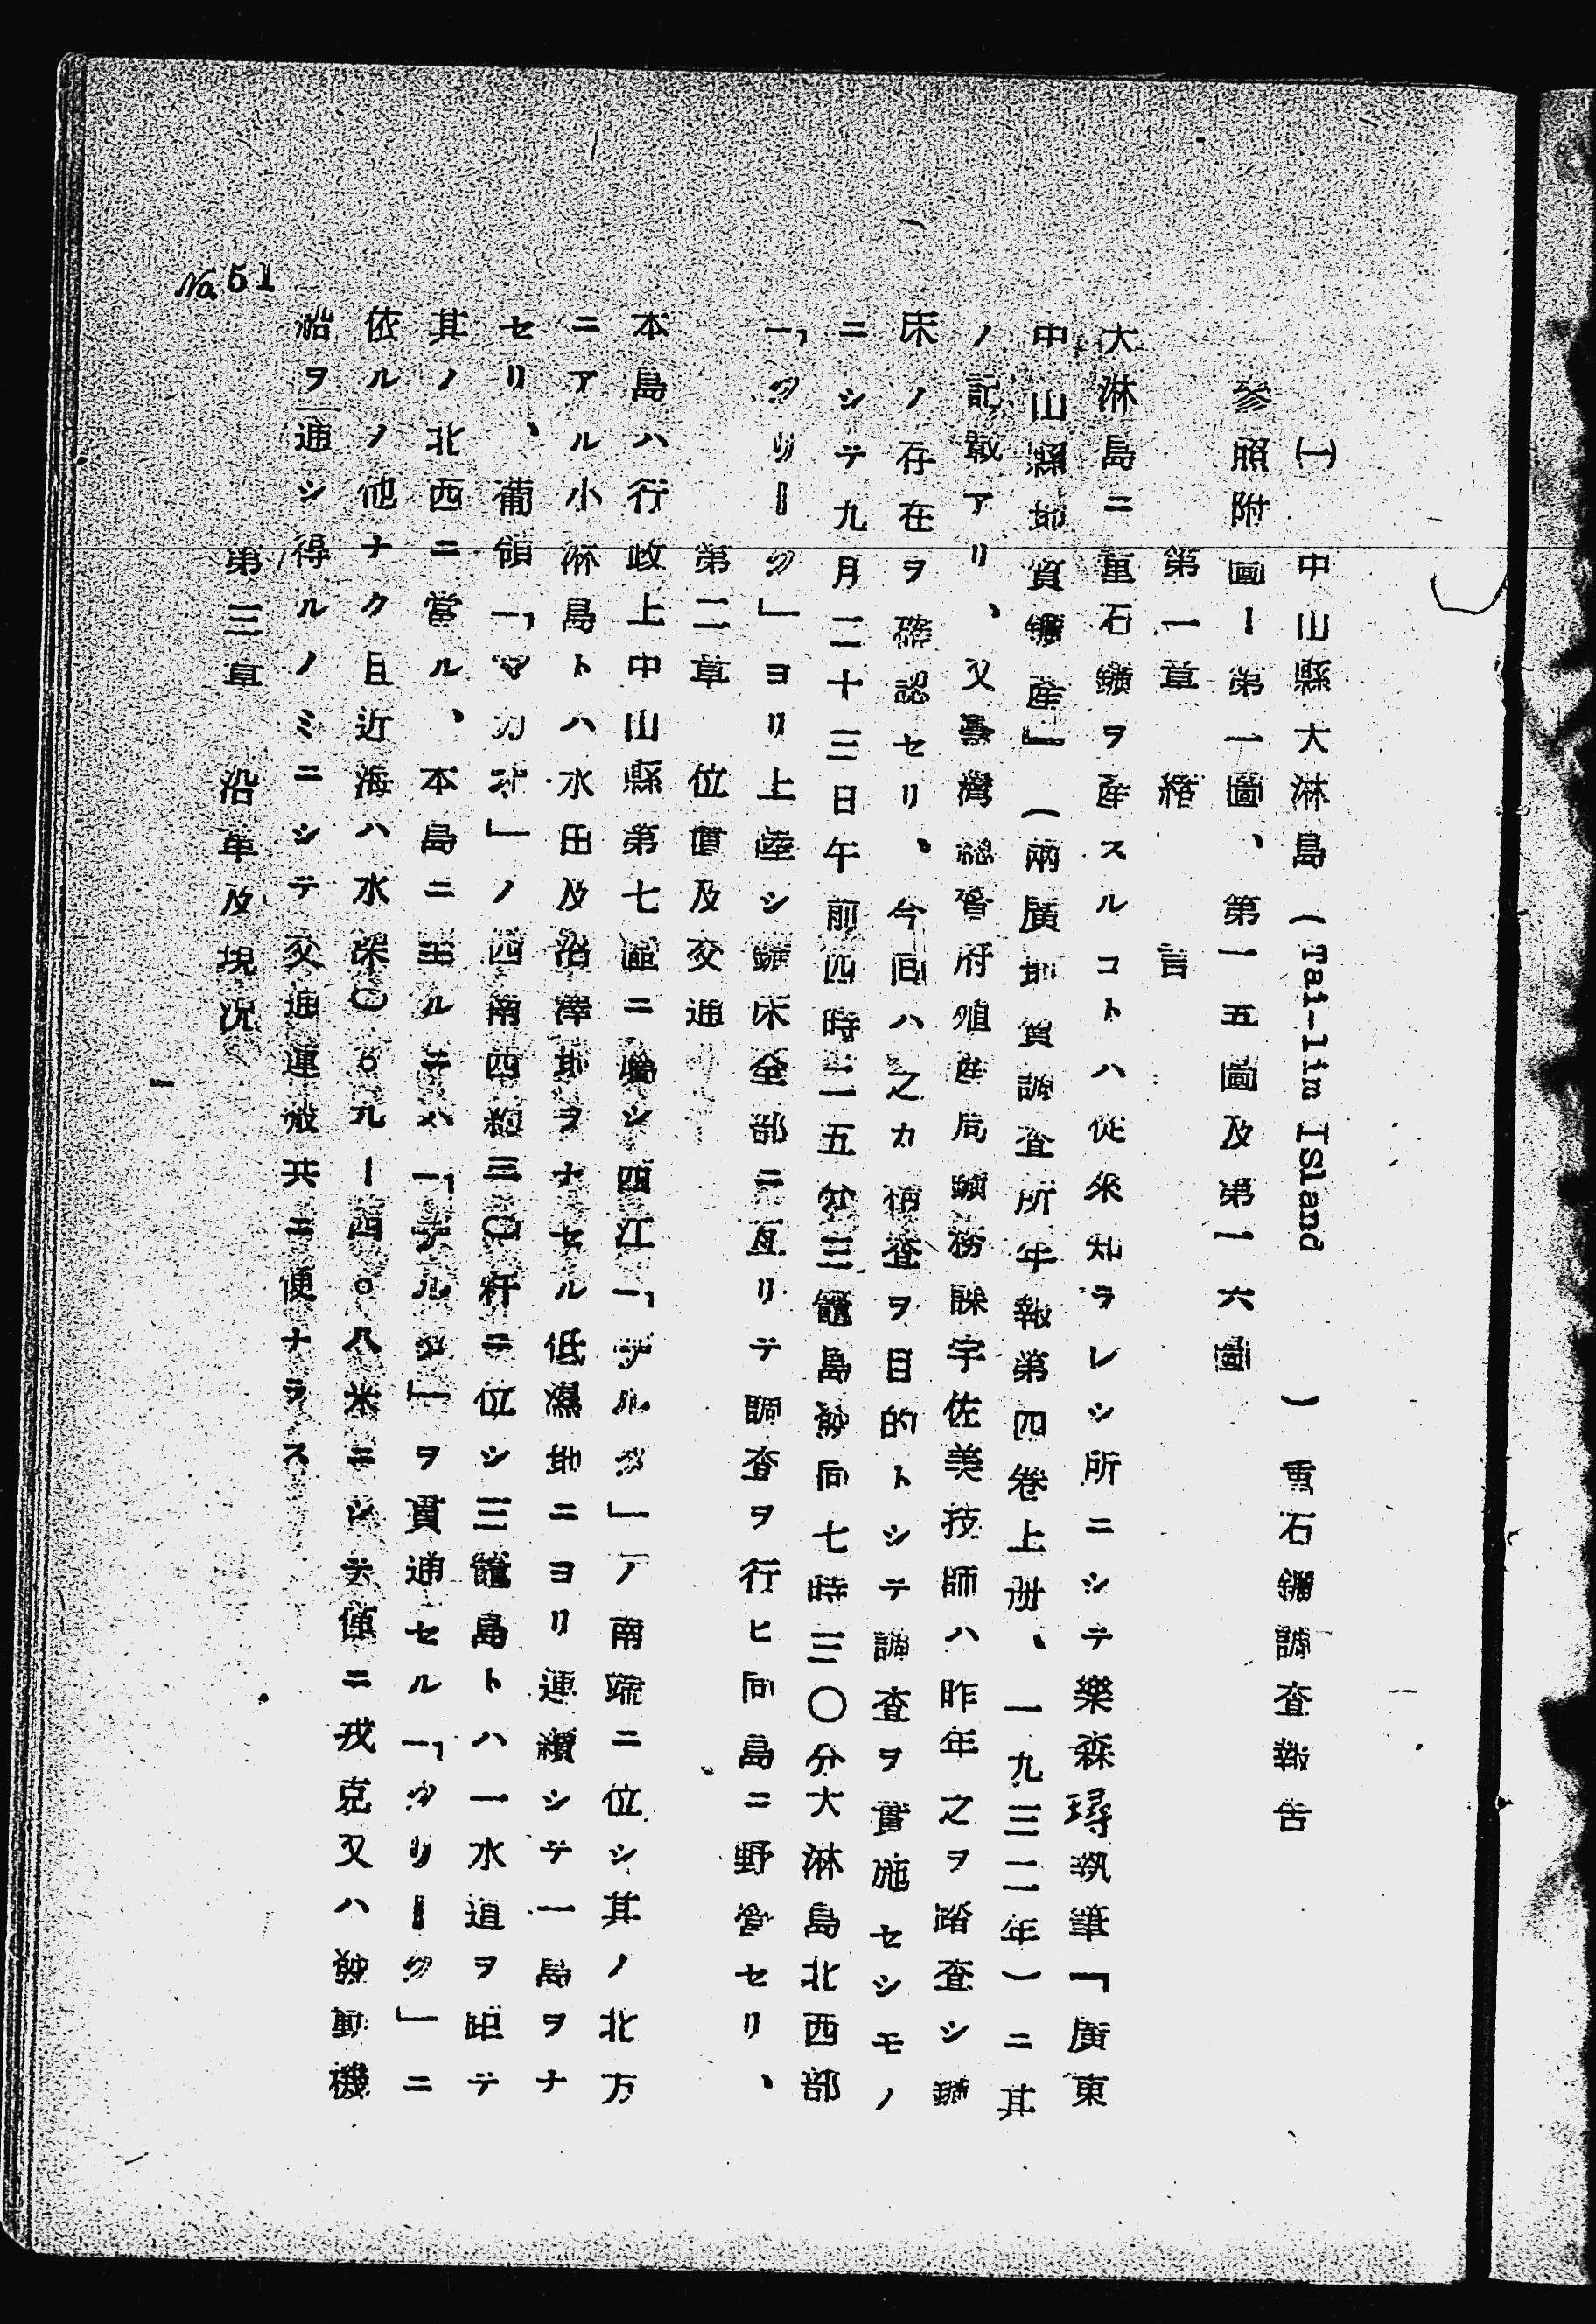 (一) 中山縣大淋島(Tai-lim Island )重石鑛調査報告
參照附圖ー第一圖、第一五圖及第一六圖
第一章 緒言
大淋島ニ重石鑛ヲ産スルコトハ從來知ラレシ所ニシテ樂森璕執筆「廣東
中山縣地質鑛産」(兩廣地質調査所年報第四卷上册、一九三二年)ニ其
ノ記載アリ、又臺灣總督府殖産局鑛務課宇佐美技師ハ昨年之ヲ踏査シ鑛
床ノ存在ヲ確認セリ、今回ハ之カ精査ヲ目的トシテ調査ヲ實施セシモノ
ニシテ九月二十三日午前四時二五分三竈島發同七時三〇分大淋島北西部
「クリーク」ヨリ上陸シ鑛床全部ニ亙リテ調査ヲ行ヒ同島ニ野營セリ、
第二章 位置及交通
本島ハ行政上中山縣第七區ニ屬シ西江「デルタ」ノ南端ニ位シ其ノ北方
ニアル小淋島トハ水田及沼澤地ヲナセル低濕地ニヨリ連續シテ一島ヲナ
セリ、葡領「マカオ」ノ西南西約三〇粁ニ位シ三竈島トハ一水道ヲ距テ
其ノ北西ニ當ル、本島ニ至ルニハ「デルタ」ヲ貫通セル「クリーク」ニ
依ルノ他ナク且近海ハ水深〇.九ー四.八米ニシテ僅ニ戎克又ハ發動機
船ヲ通シ得ルノミニシテ交通運搬共ニ便ナラス
第三章 沿革及現況
一
No.51